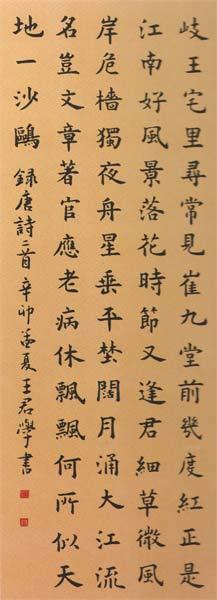 岐王宅里尋常見崔九堂前幾度紅正是
江南好風景落花時節又逢君細草微風
岸危檣獨夜舟星垂平埜闊月涌大江流
名豈文章著官應老病休飄飄何所似天
地一沙鷗 録唐詩二首辛卯夏王君學書